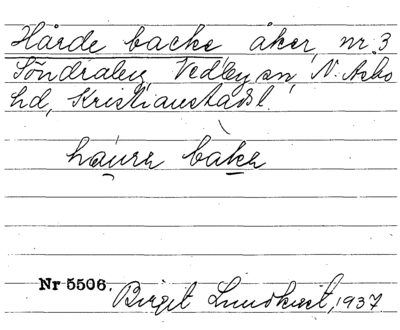 Hårde backe åker, nr 3
Söndraby, Vedby sn, N. Åsbo
hd, Kristianstads l.
håurr bàkh
Nr 5506.
Birgit Lundkvist, 1937